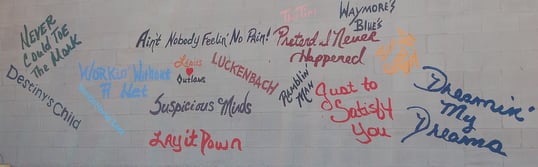 NEVER
Could Toe
The Mark
Destiny's Child
WORKIN' Without
A Net
Ain't Nobody Feelin' No Pain!
Lovers
Outlaws
LUCKENBACH
Suspicious Minds
Lay it Down
WAYMORE'S
Blue's
Pretend I Never
Happened
Ramblin'
MAN
Just to
Satisfy
You
Dreamin'
My
Dreams